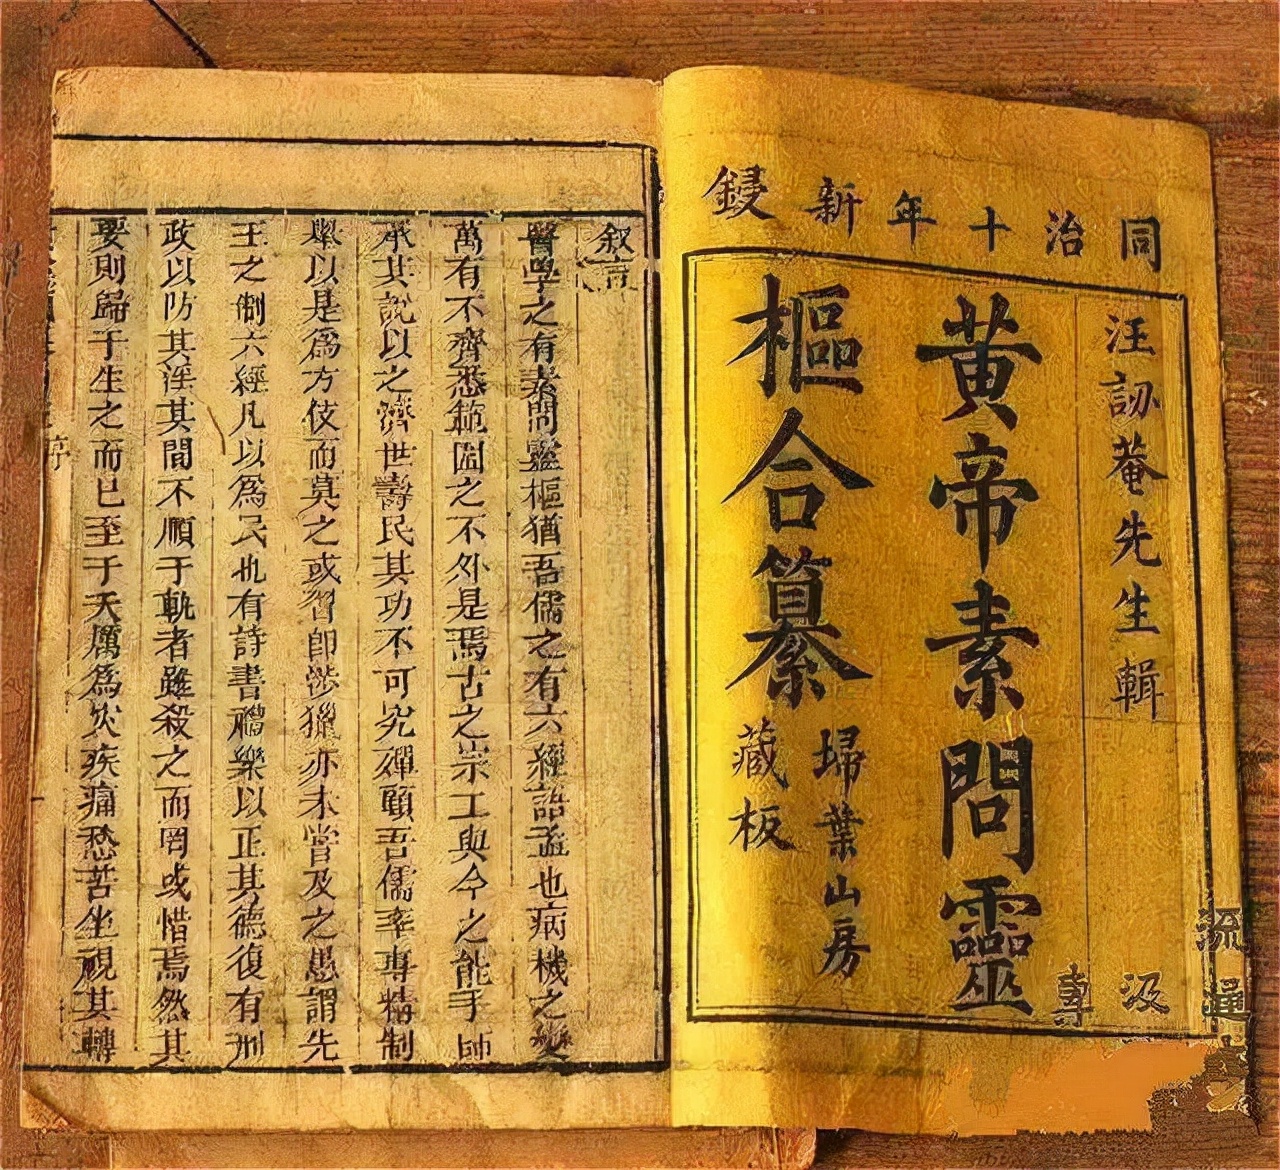 同治十年新鋟
汪訒菴先生輯
黃帝素問靈
樞合纂
掃葉山房
藏板
叙言
醫學之有素問靈樞猶吾儒之有六經語孟也病機之變
萬有不齊悉範圍之不外是焉古之宗工與今之能手師
承其說以之濟世壽民其功不可究殫顧吾儒率專精制
舉以是爲方伎而莫之或習卽涉獵亦未嘗及之愚謂先
王之制六經凡以爲民也有詩書禮樂以正其德復有刑
政以防其淫其間不順于軌者雖殺之而罔或惜焉然其
要則歸于生之而已至于天厲爲災疾痛愁苦坐視其轉